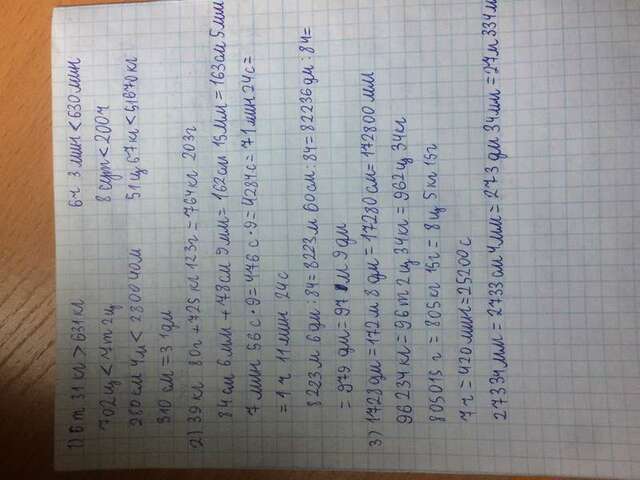 1) 6 т 31 кг > 631 кг
6 ч 3 мин < 630 мин
702 ц < 7 т 2 ц
8 сут < 200 ч
280 см 4 м < 2800 40 м
51 ц 67 кг < 51670 кг
310 см = 31 дм
2) 39 кг 80 г + 725 кг 123 г = 764 кг 203 г
84 см 6 мм + 78 см 9 мм = 162 см 15 мм = 163 см 5 мм
7 мин 56 с · 9 = 476 с · 9 = 4284 с = 71 мин 24 с =
= 1 ч 11 мин 24 с
8223 м 6 дм : 84 = 8223 м 60 см : 84 = 82236 дм : 84 =
= 979 дм = 97 м 9 дм
3) 1728 дм = 172 м 8 дм = 17280 см = 172800 мм
96234 кг = 96 т 2 ц 34 кг = 962 ц 34 кг
805015 г = 805 кг 15 г = 8 ц 5 кг 15 г
7 ч = 420 мин = 25200 с
27334 мм = 2733 см 4 мм = 273 дм 34 мм = 27 м 334 м